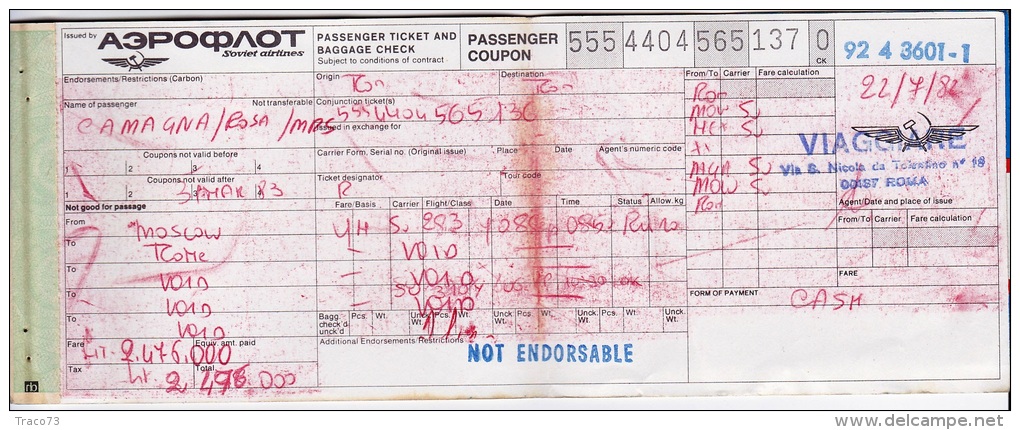 Issued by АЭРОФЛОТ
Soviet airlines
PASSENGER TICKET AND
BAGGAGE CHECK
Subject to conditions of contract
PASSENGER
COUPON
555 4404 565 137 0
CK
92 4 3601-1
Endorsements/Restrictions (Carbon)
Origin Rom
Destination Rom
From/To Carrier Fare calculation
22/7/82
Name of passenger
Not transferable
CAMAGNA/ROSA/MRS
Conjunction ticket(s)
5554404 565 136
Issued in exchange for
Rom
MOW SU
Coupons not valid before
1 2 3 4
Carrier Form. Serial no. (Original issue) Place Date Agent's numeric code
Coupons not valid after
1 2 3 4
Ticket designator
R
Tour code
MOW SU
Rom
VIAGGIARE
Via S. Nicola da Tolentino n° 18
00187 ROMA
Agent/Date and place of issue
Not good for passage Fare/Basis Carrier Flight/Class Date Time Status Allow.kg
From MOSCOW YH SU 283
To ROME — VOID
To VOID — VOID
To VOID — VOID
To VOID
From/To Carrier Fare calculation
FARE
FORM OF PAYMENT
CASH
Bagg. check'd unck'd
Pcs. Wt. Unck. Wt. Pcs. Wt. Unck. Wt. Pcs. Wt. Unck. Wt. Pcs. Wt. Unck. Wt.
Fare Lit. 2.476.000
Equiv. amt. paid
Additional Endorsements/Restrictions
NOT ENDORSABLE
Tax
Total
Lit 2.476.000
Traco73
delcampe.net